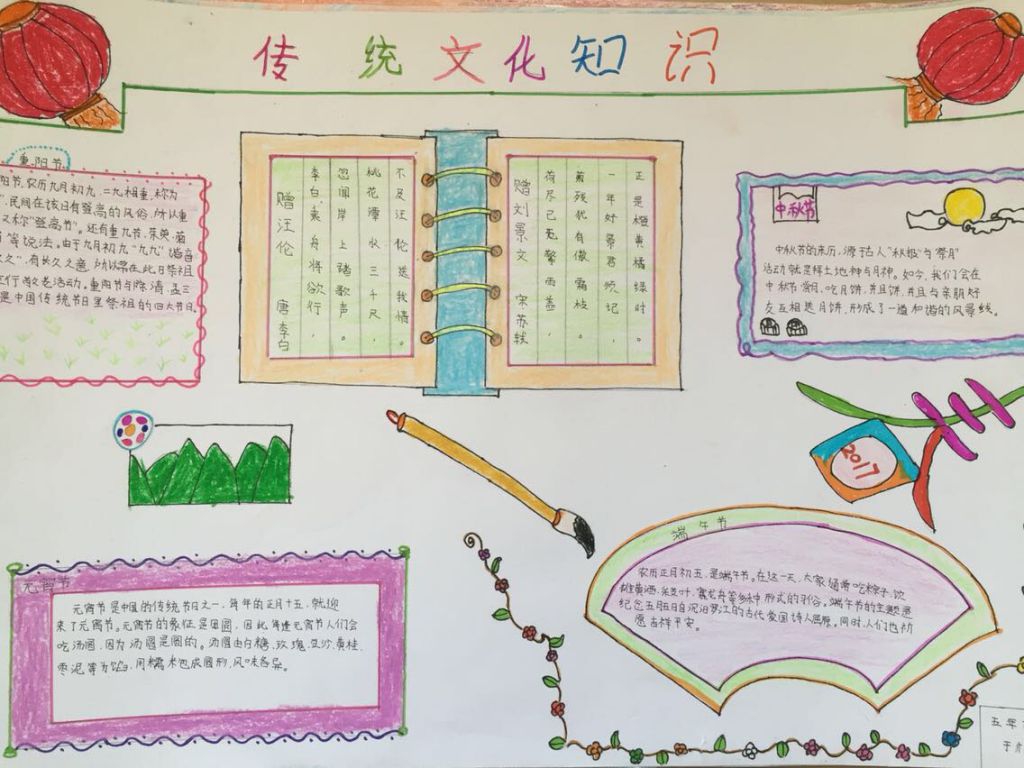 传统文化知识
重阳节
阳节,农历九月初九,二九相重,称为
",民间在该日有登高的风俗,所以重
又称"登高节"。还有重九节,茱萸,菊
等说法。由于九月初九"九九"谐音
久久",有长久之意,所以常在此日祭祖
行敬老活动。重阳节与除,清,盂三
是中国传统节日里祭祖的四大节日
赠汪伦 唐李白
李白乘舟将欲行,
忽闻岸上踏歌声。
桃花潭水三千尺,
不及汪伦送我情。
赠刘景文 宋苏轼
荷尽已无擎雨盖,
菊残犹有傲霜枝。
一年好景君须记,
正是橙黄橘绿时。
中秋节
中秋节的来历,源于古人"秋报"与"祭月"
活动就是拜土地神与月神。如今,我们会在
中秋节赏月,吃月饼,并且饼,并且与亲朋好
友互相送月饼,形成了一道和谐的风景线。
2017
元宵节
元宵节是中国的传统节日之一,每年的正月十五,就迎
来了元宵节。元宵节的象征是团圆,因此每逢元宵节人们会
吃汤圆,因为汤圆是圆的。汤圆由白糖,玫瑰,豆沙,黄桂,
枣泥等为馅,用糯米包成圆形,风味各异。
端午节
农历正月初五,是端午节。在这一天,大家通常吃粽子,饮
雄黄酒,叶,赛龙舟等多种形式的习俗。端午节的主题是
纪念五月五日自沉汨罗江的古代爱国诗人屈原。同时,人们也祈
愿吉祥平安。
五年
于